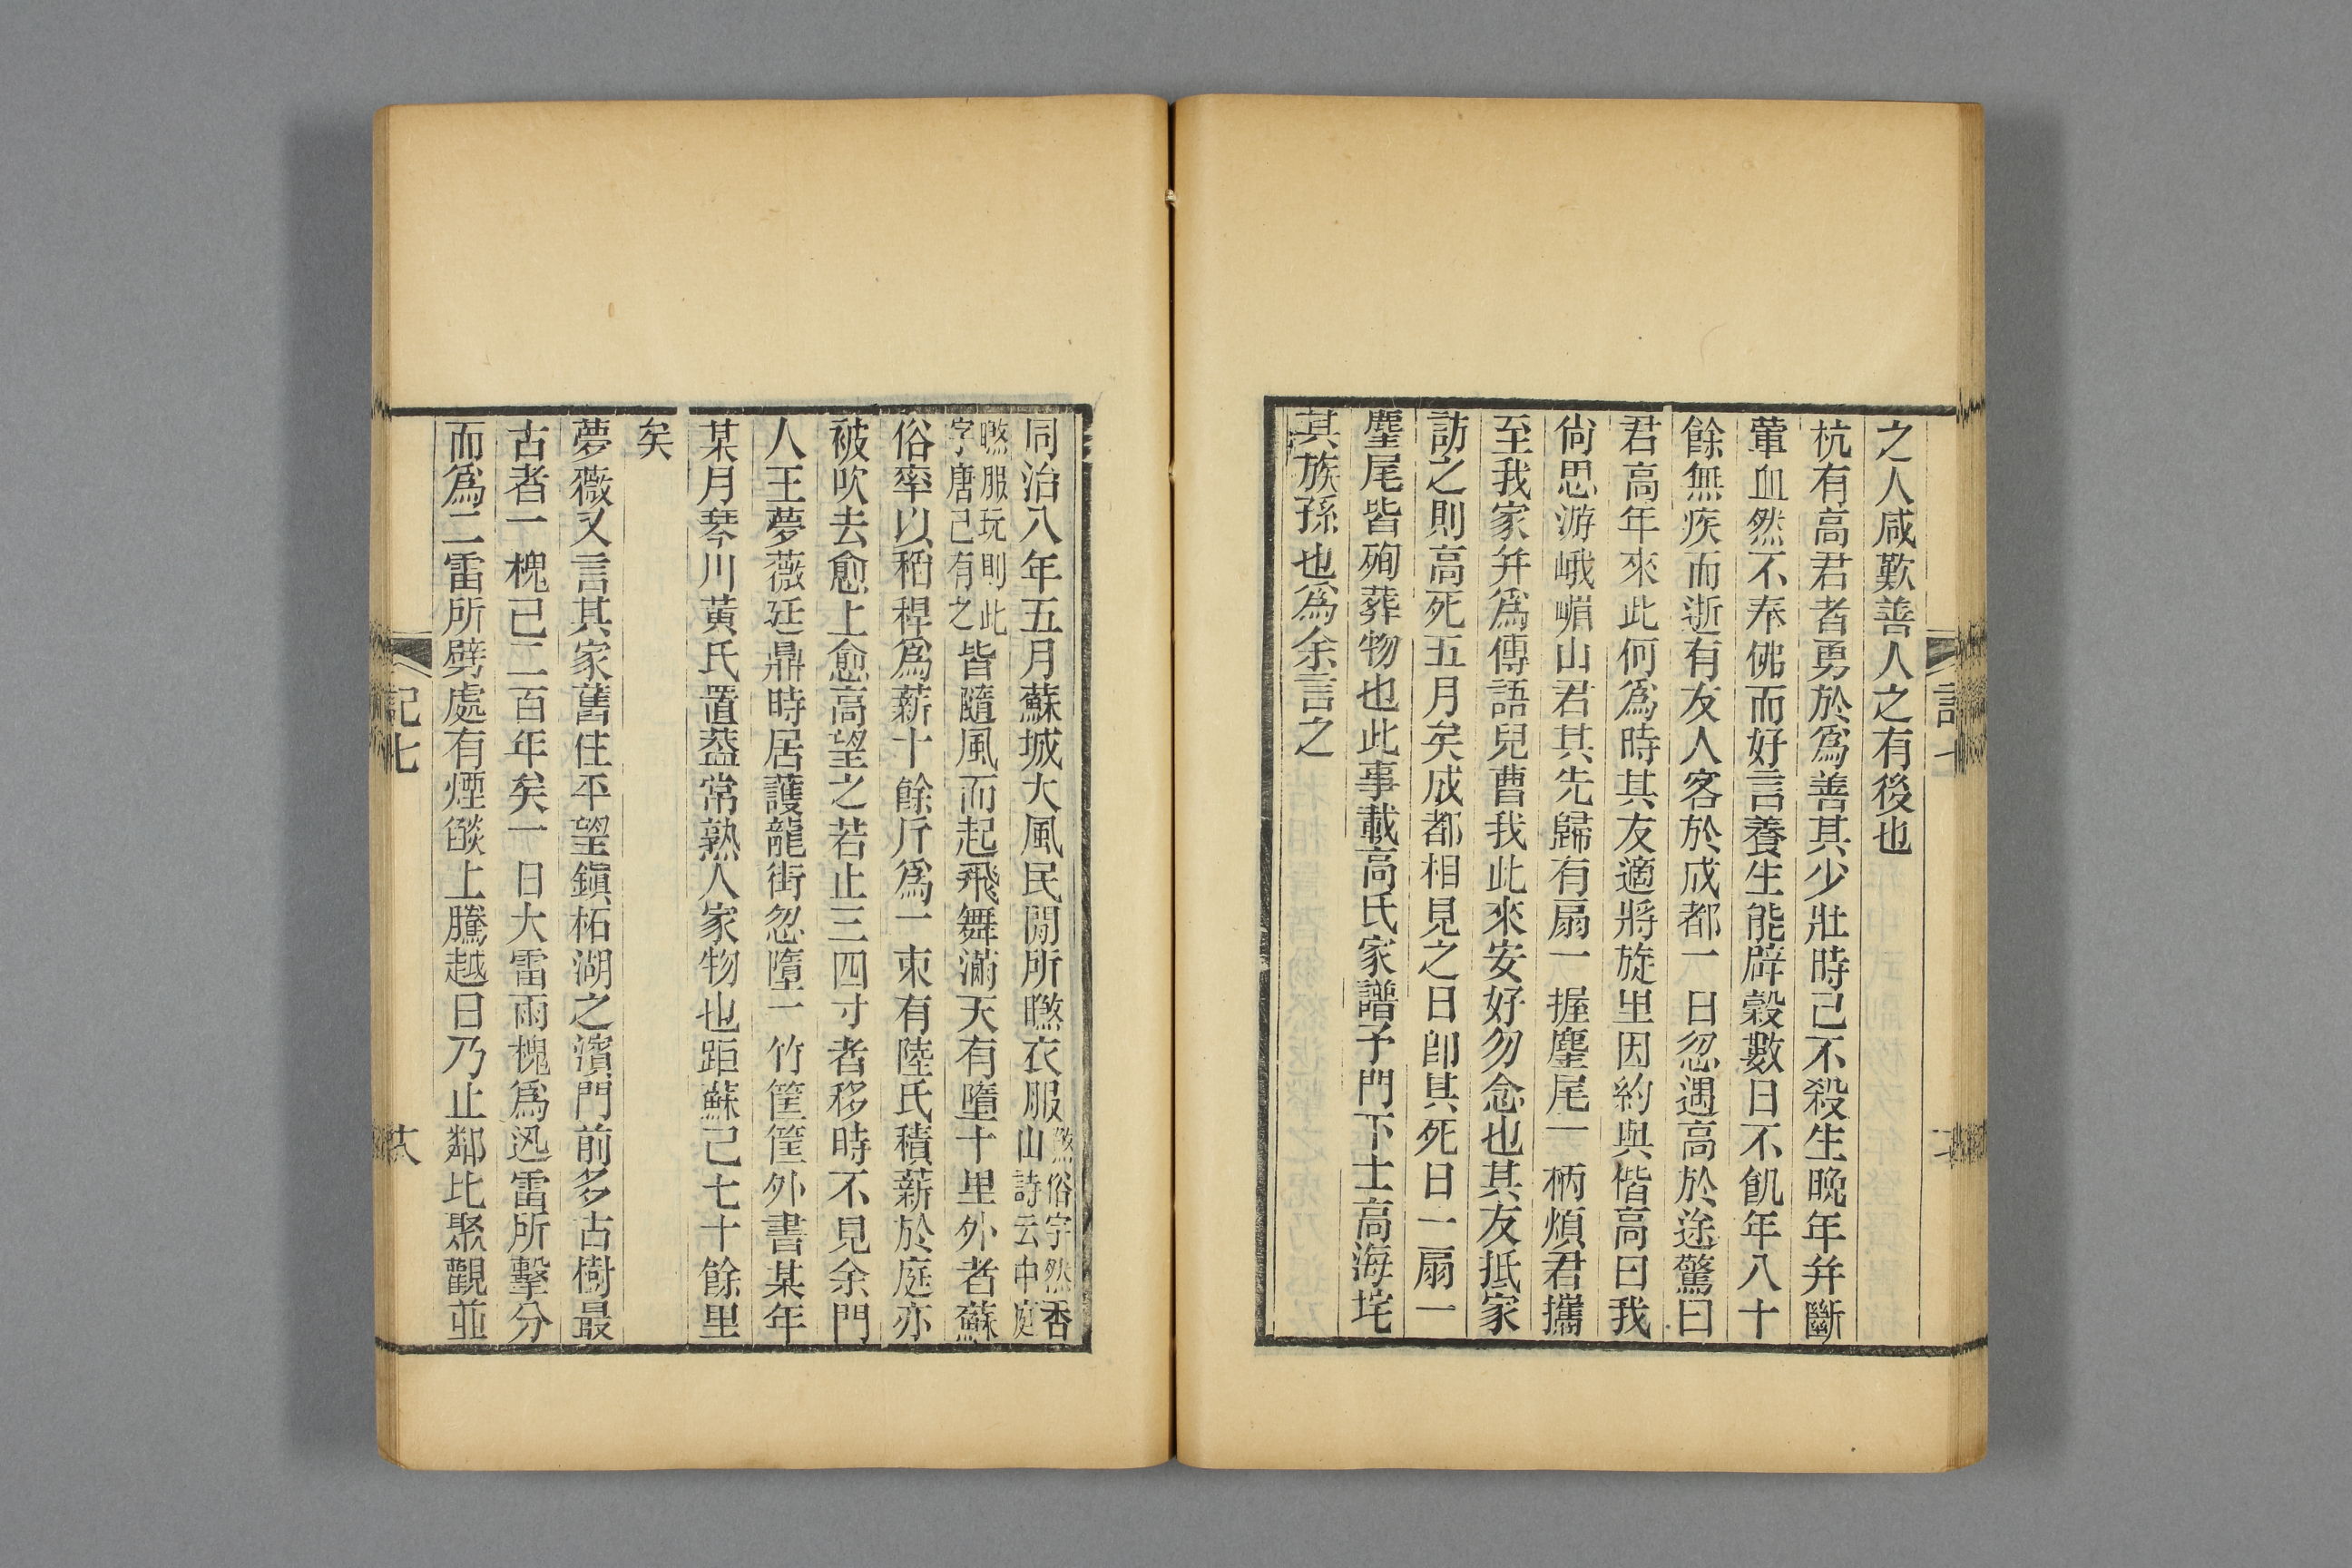 之人咸歎善人之有後也
杭有高君者勇於爲善其少壯時己不殺生晚年弁斷
葷血然不奉佛而好言養生能辟穀數日不飢年八十
餘無疾而逝有友人客於成都一日忽遇高於途驚曰
君高年來此何爲時其友適將旋里因約與偕高曰我
尙思游峨嵋山君其先歸有扇一握麈尾一柄煩君攜
至我家弁爲傳語兒曹我此來安好勿念也其友抵家
訪之則高死五月矣成都相見之日卽其死日一扇一
麈尾皆殉葬物也此事載高氏家譜予門下士高海垞
其族孫也爲余言之
同治八年五月蘇城大風民閒所㬠衣服㬠俗字然香山詩云中庭
㬠服玩則此字唐己有之皆隨風而起飛舞滿天有墮十里外者蘇
俗率以稻稈爲薪十餘斤爲一束有陸氏積薪於庭亦
被吹去愈上愈高望之若止三四寸者移時不見余門
人王夢薇廷鼎時居護龍街忽墮一竹筐筐外書某年
某月琴川黃氏置葢常熟人家物也距蘇己七十餘里
矣
夢薇又言其家舊住平望鎭柘湖之濱門前多古樹最
古者一槐己二百年矣一日大雷雨槐爲迅雷所擊分
而爲二雷所劈處有煙燄上騰越日乃止鄰比聚觀並
記七